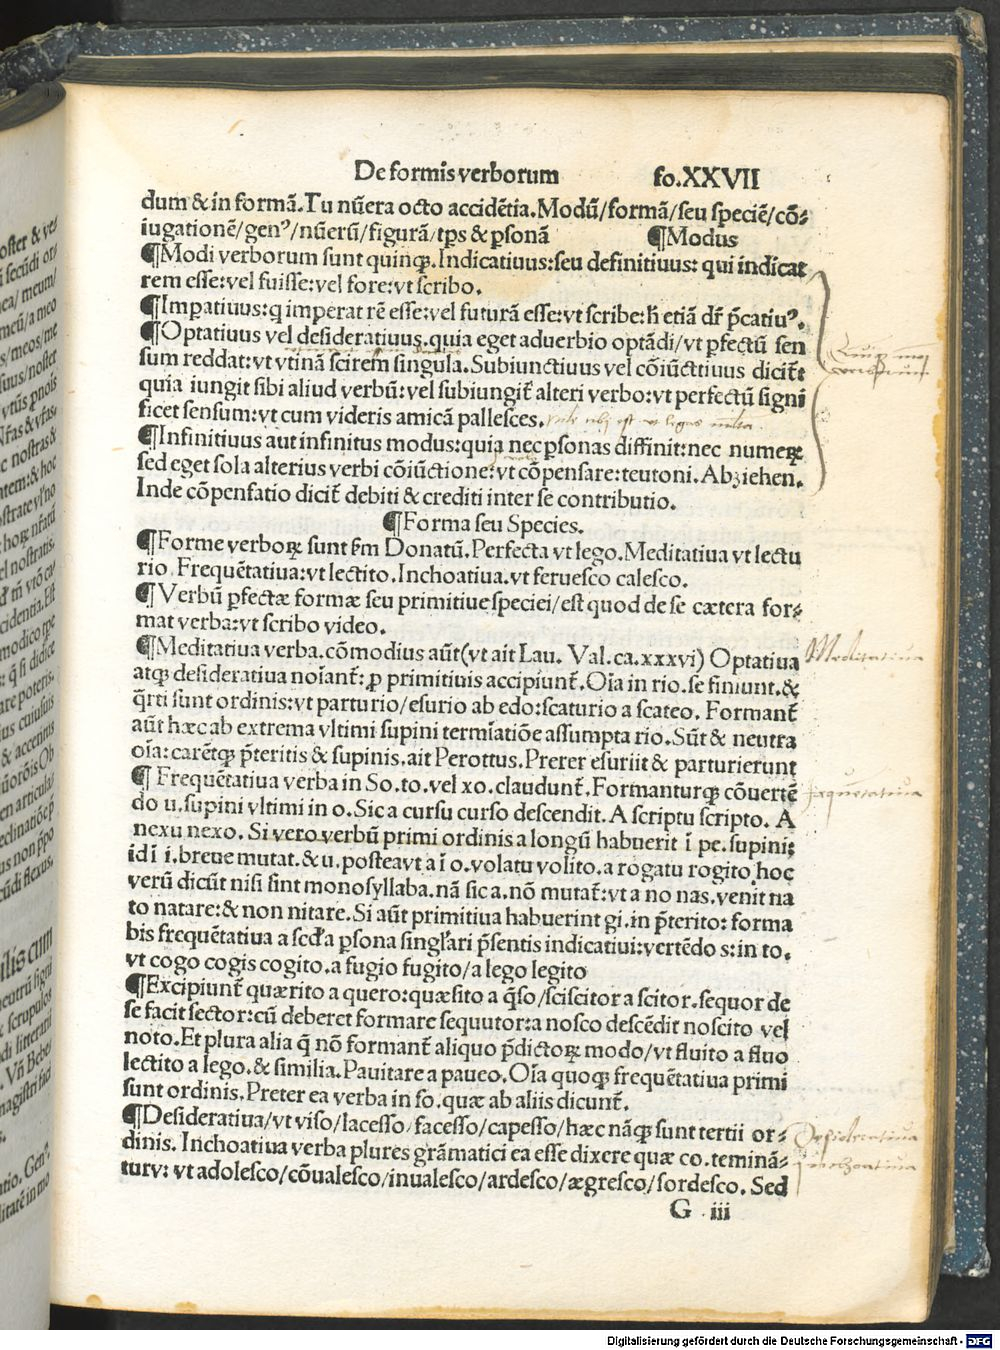 De formis verborum fo.XXVII
dum & in formā. Tu nūera octo accidētia. Modū/formā/seu speciē/cō⸗
iugationē/genꝰ/nūerū/figurā/tp̄s & ꝑsonā ¶Modus
¶Modi verborum sunt quinqꝫ. Indicatiuus:seu definitiuus: qui indicat
rem esse:vel fuisse:vel fore:vt scribo.
¶Impatiuus:q imperat rē esse:vel futurā esse:vt scribe:h̄ etiā dr̄ p̄catiuꝰ.
¶Optatiuus vel desideratiuus.quia eget aduerbio optādi/vt ꝑfectū sen
sum reddat:vt vtinā scirem singula. Subiunctiuus vel cōiūctiuus dicit̄
quia iungit sibi aliud verbū:vel subiungit̄ alteri verbo:vt perfectū signi
ficet sensum:vt cum videris amicā pallesces.
¶Infinitiuus aut infinitus modus:quia nec ꝑsonas diffinit:nec numeꝝ
sed eget sola alterius verbi cōiūctione:vt cōpensare:teutoni. Abziehen.
Inde cōpensatio dicit̄ debiti & crediti inter se contributio.
¶Forma seu Species.
¶Forme verboꝝ sunt ẜm Donatū. Perfecta vt lego. Meditatiua vt lectu
rio. Frequētatiua:vt lectito. Inchoatiua.vt feruesco calesco.
¶Verbū ꝑfectæ formæ seu primitiue speciei/est quod de se cætera for⸗
mat verba:vt scribo video.
¶Meditatiua verba.cōmodius aūt(vt ait Lau. Val.ca.xxxvi) Optatiua
atqꝫ desideratiua noīant̄: ꝓ primitiuis accipiunt̄. Oīa in rio.se finiunt.&
q̄rti sunt ordinis:vt parturio/esurio ab edo:scaturio a scateo. Formant̄
aūt hæc ab extrema vltimi supini termīatiōe assumpta rio. Sūt & neutra
oīa: carēt̄qꝫ p̄teritis & supinis.ait Perottus. Preter esuriit & parturierunt
¶ Frequētatiua verba in So.to.vel xo.claudunt̄. Formanturqꝫ cōuertē
do u.supini vltimi in o. Sic a cursu curso descendit. A scriptu scripto. A
nexu nexo. Si vero verbū primi ordinis a longū habuerit ī pe.supini:
id ī i.breue mutat.& u.posteavt a ī o.volatu volito.a rogatu rogito hoc
verū dicūt nisi sint monosyllaba.nā sic a.nō mutat̄:vt a no nas.venit na
to natare:& non nitare. Si aūt primitiua habuerint gi.in p̄terito: forma
bis frequētatiua a scd̄a ꝑsona singl̄ari p̄sentis indicatiui:vertēdo s:in to.
vt cogo cogis cogito.a fugio fugito/a lego legito
¶Excipiunt̄ quærito a quero:quæsito a q̄so/sciscitor a scitor.sequor de
se facit sector:cū deberet formare sequutor:a nosco descēdit noscito vel
noto. Et plura alia q̄ nō formant̄ aliquo p̄dictoꝝ modo/vt fluito a fluo
lectito a lego.& similia. Pauitare a paueo. Oīa quoqꝫ frequētatiua primi
sunt ordinis. Preter ea verba in so.quæ ab aliis dicunt̄.
¶Desideratiua/vt viso/lacesso/facesso/capesso/hæc nāqꝫ sunt tertii or⸗
dinis. Inchoatiua verba plures grāmatici ea esse dixere quæ co.teminā⸗
turv: vt adolesco/cōualesco/inualesco/ardesco/ægresco/sordesco. Sed
G iii
Meditatiua
frequētatiua
Desideratiua
inchoatiua
Digitalisierung gefördert durch die Deutsche Forschungsgemeinschaft - DFG